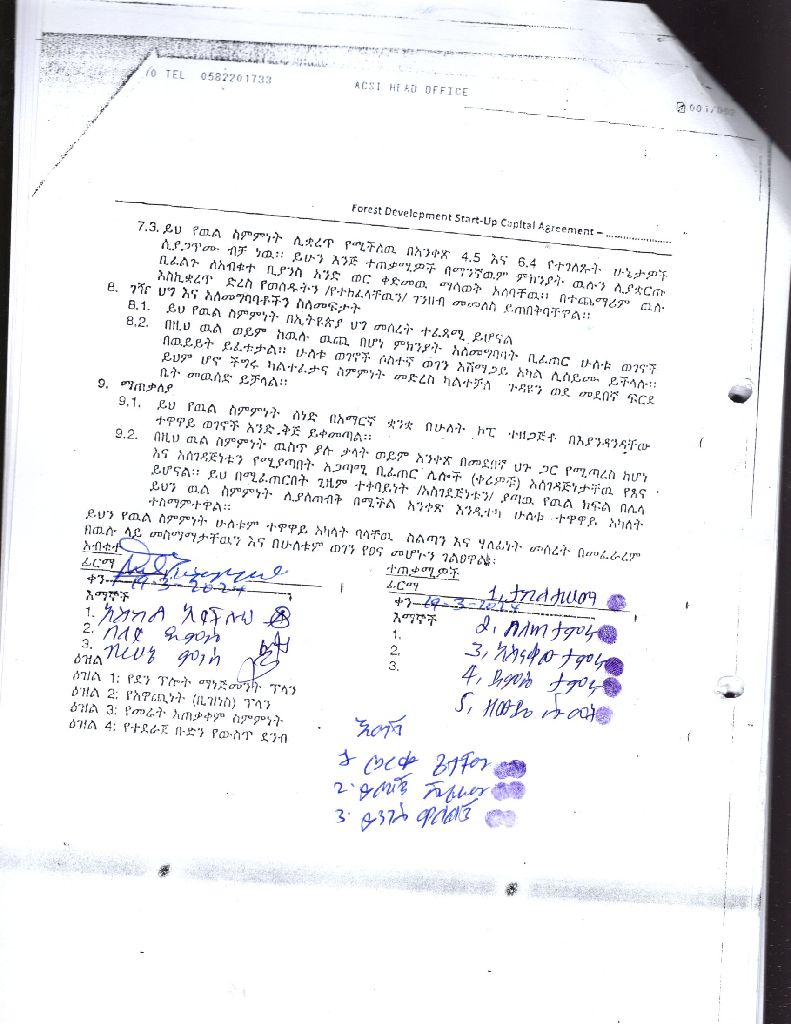 TEL 0582201733
ACSI HEAD OFFICE
001/002
Forest Development Start-Up Capital Agreement – ........................
7.3. ይህ የዉል ስምምነት ሊቋረጥ የሚችለዉ በአንቀጽ 4.5 እና 6.4 የተገለጹት ሁኔታዎች
ሲያጋጥሙ ብቻ ነዉ፡፡ ይሁን እንጅ ተጠቃሚዎች በማንኛዉም ምክንያት ዉሉን ሊያቋርጡ
ቢፈልጉ ለአብቁተ ቢያንስ አንድ ወር ቀድመዉ ማሳወቅ አለባቸዉ፡፡ በተጨማሪም ዉሉ
እስኪቋረጥ ድረስ የወሰዱትን /የተከፈላቸዉን/ ገንዘብ መመለስ ይጠበቅባቸዋል፡፡
8. ገዥ ህግ እና አለመግባባቶችን ስለመፍታት
8.1. ይህ የዉል ስምምነት በኢትዮጵያ ህግ መሰረት ተፈጻሚ ይሆናል
8.2. በዚህ ዉል ወይም ከዉሉ ዉጪ በሆነ ምክንያት አለመግባባት ቢፈጠር ሁለቱ ወገኖች
በዉይይት ይፈቱታል፡፡ ሁለቱ ወገኖች ሶስተኛ ወገን አሸማጋይ አካል ሊሰይሙ ይችላሉ፡፡
ይህም ሆኖ ችግሩ ካልተፈታና ስምምነት መድረስ ካልተቻለ ጉዳዩን ወደ መደበኛ ፍርድ
ቤት መዉሰድ ይቻላል፡፡
9. ማጠቃለያ
9.1. ይህ የዉል ስምምነት ሰነድ በአማርኛ ቋንቋ በሁለት ኮፒ ተዘጋጅቶ በእያንዳንዳቸው
ተዋዋይ ወገኖች አንድ ቅጅ ይቀመጣል፡፡
9.2. በዚህ ዉል ስምምነት ዉስጥ ያሉ ቃላት ወይም አንቀጽ በመደበኛ ህጉ ጋር የሚጣረስ ከሆነ
እና አስገዳጅነቱን የሚያጣበት አጋጣሚ ቢፈጠር ሌሎች (ቀሪዎች) አስገዳጅነታቸዉ የጸና
ይሆናል፡፡ ይህ በሚፈጠርበት ጊዜም ተቀባይነት /አስገዳጅነቱን/ ያጣዉ የዉል ክፍል በሌላ
ይህን ዉል ስምምነት ሊያስጠብቅ በሚችል አንቀጽ እንዲተካ ሁለቱ ተዋዋይ አካለት
ተስማምተዋል፡፡
ይህን የዉል ስምምነት ሁለቱም ተዋዋይ አካላት ባላቸዉ ስልጣን እና ሃላፊነት መሰረት በመፈራረም
በዉሉ ላይ መስማማታቸዉን እና በሁለቱም ወገን የፀና መሆኑን ገልፀዋል፡
አብቁተ
ፊርማ
ቀን 19-3-2024
እማኞች
1.
2.
3.
ተጠቃሚዎች
ፊርማ
ቀን 19-3-2024
እማኞች
1.
2.
3.
1,
2,
3,
4,
5,
ዕዝል
ዕዝል 1: የደን ፕሎት ማነጅመንት ፕላን
ዕዝል 2: የአዋጪነት (ቢዝነስ) ፕላን
ዕዝል 3: የመሬት አጠቃቀም ስምምነት
ዕዝል 4: የተደራጀ ቡድን የውስጥ ደንብ
1
2
3